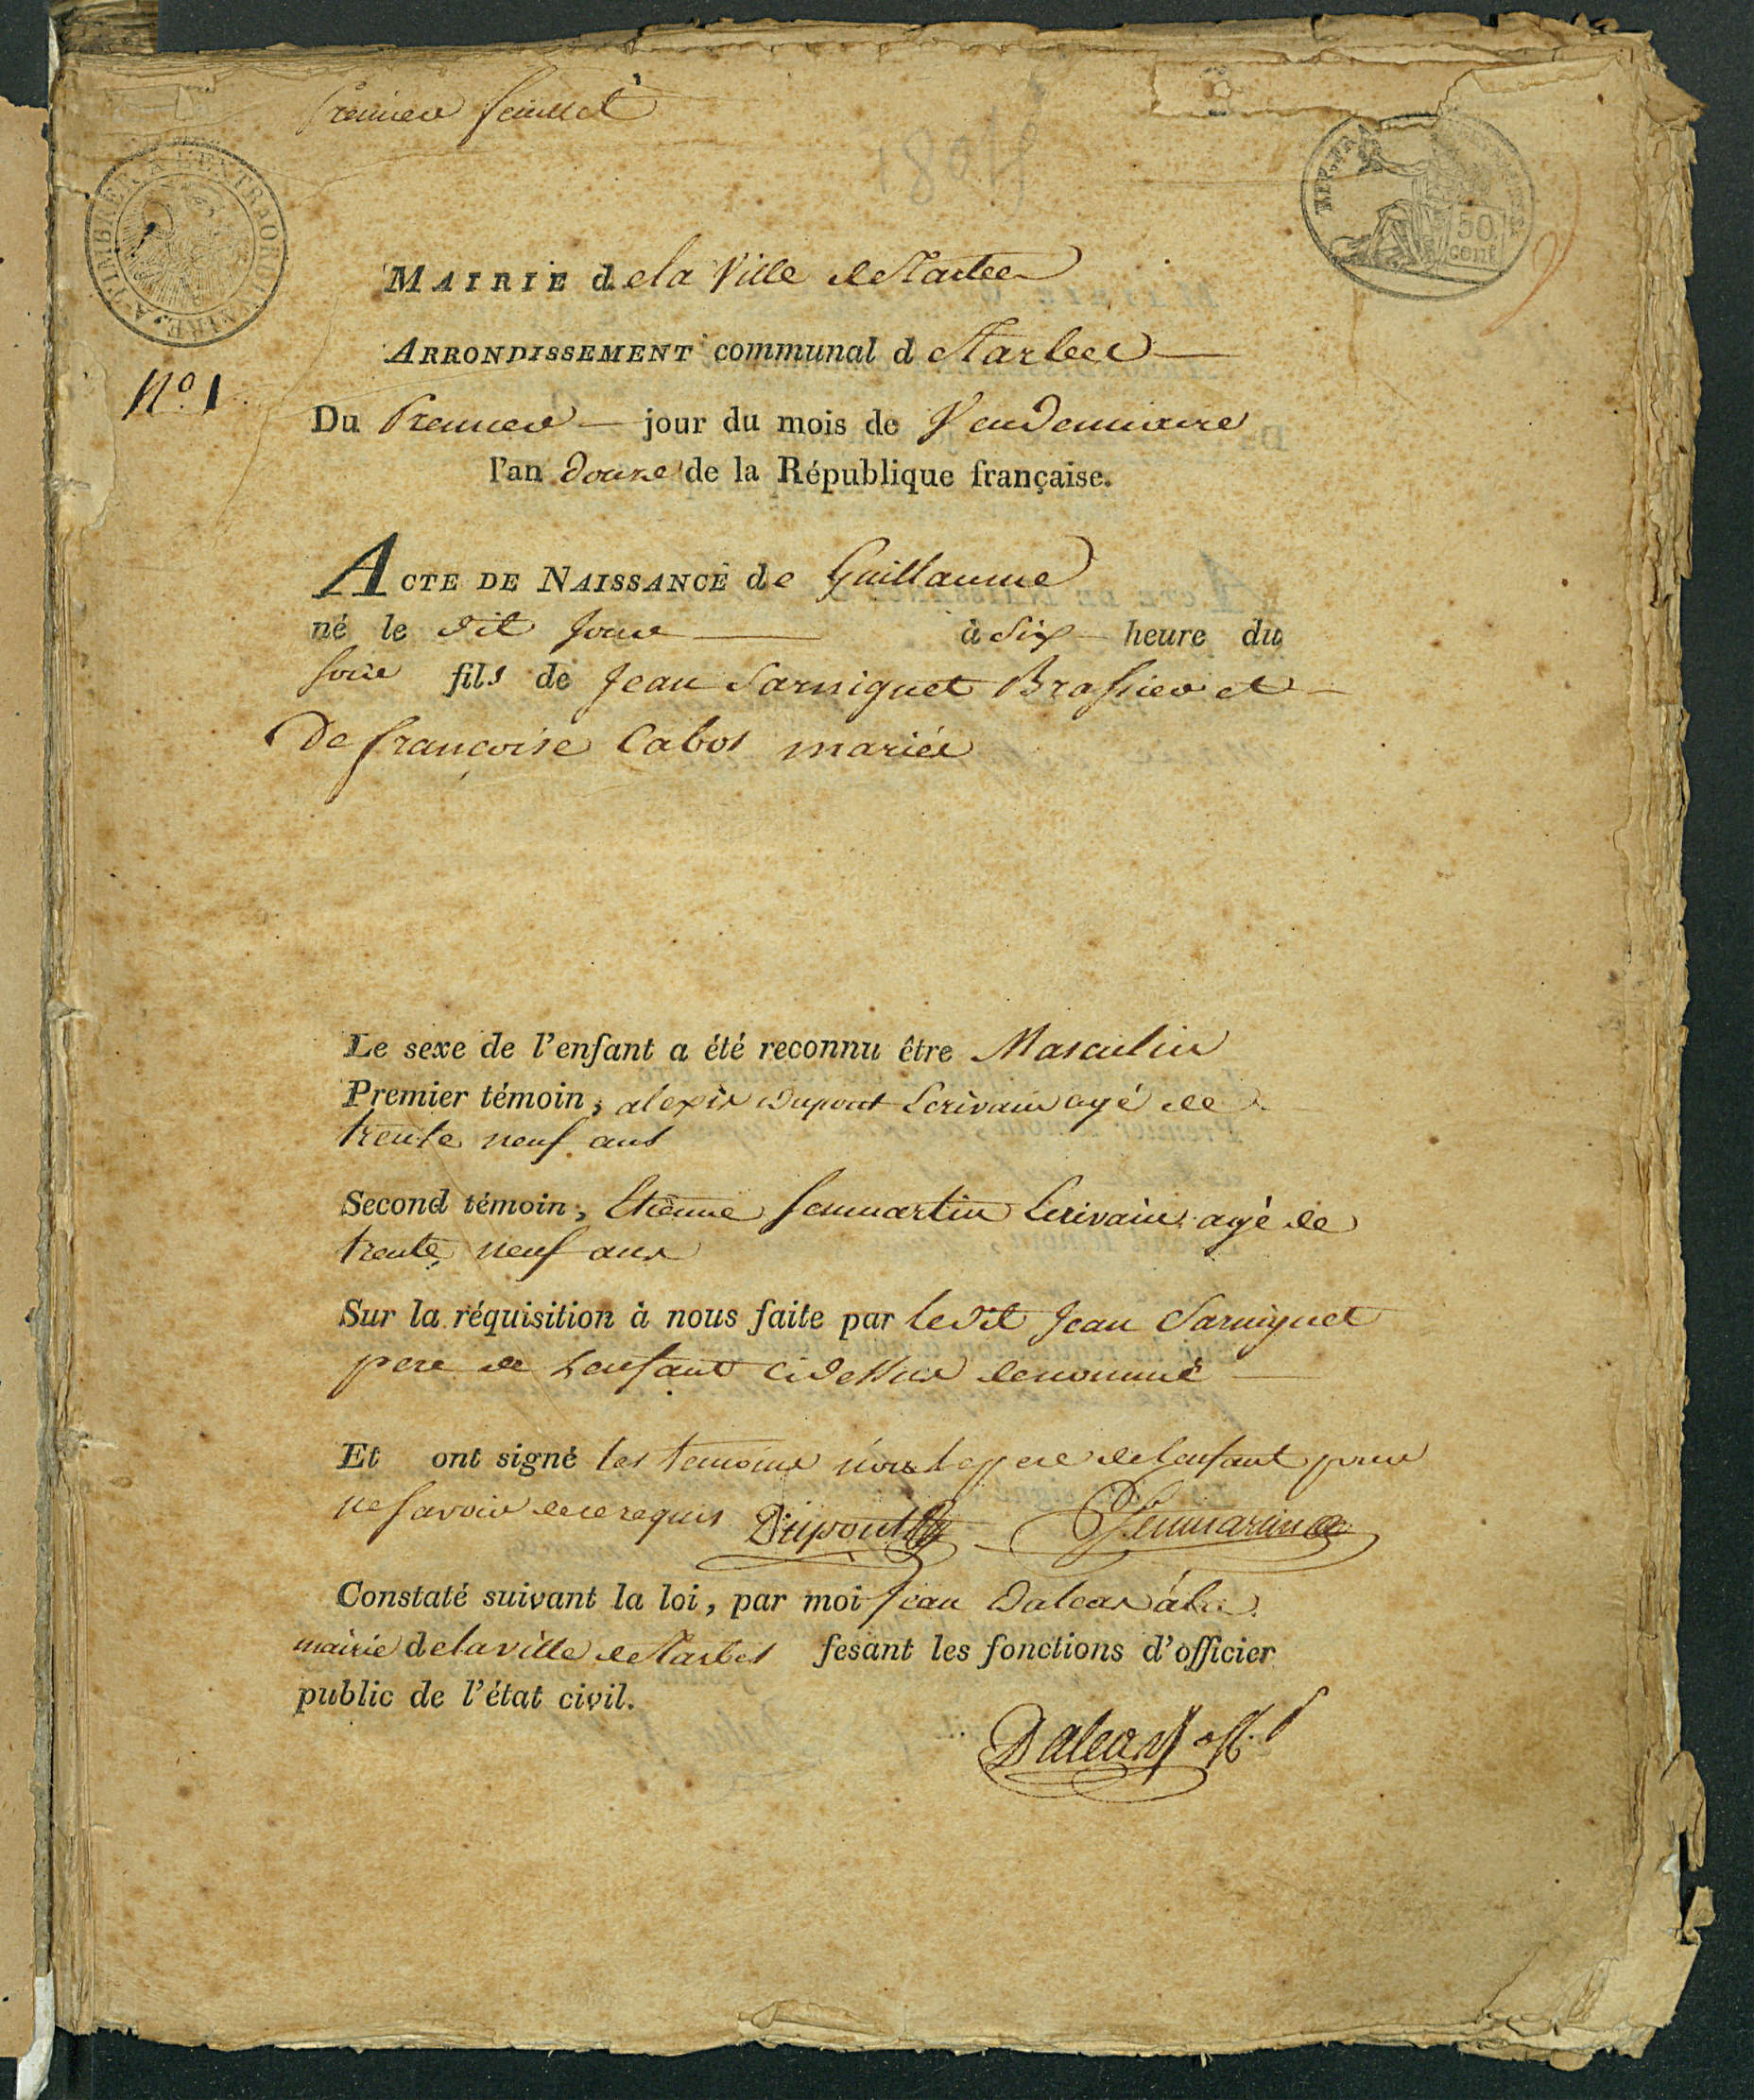 Premier feuillet
A TIMBRER A L'EXTRAORDINAIRE
REP. FRA
50 cent
MAIRIE de la Ville de Tarbes
ARRONDISSEMENT communal de Tarbes
N.º 1
Du Premier jour du mois de Vendemiaire
l'an douze de la République française.
ACTE DE NAISSANCE de Guillaume
né le dit jour à Six heure du
soir fils de Jean Sarniguet Brassier et
De françoise Cabos mariés
Le sexe de l'enfant a été reconnu être Masculin
Premier témoin, alexis dupont Ecrivain agé de
trente neuf ans
Second témoin, Etienne Senmartin Ecrivain agé de
trente neuf ans
Sur la réquisition à nous faite par ledit Jean Sarniguet
pere de Lenfant cidessus denommé
Et ont signé les temoins non le pere de lenfant pour
ne savoir de ce requis Dupont Senmartin
Constaté suivant la loi, par moi Jean Daleas
mairie de la ville de Tarbes fesant les fonctions d'officier
public de l'état civil.
Daleas